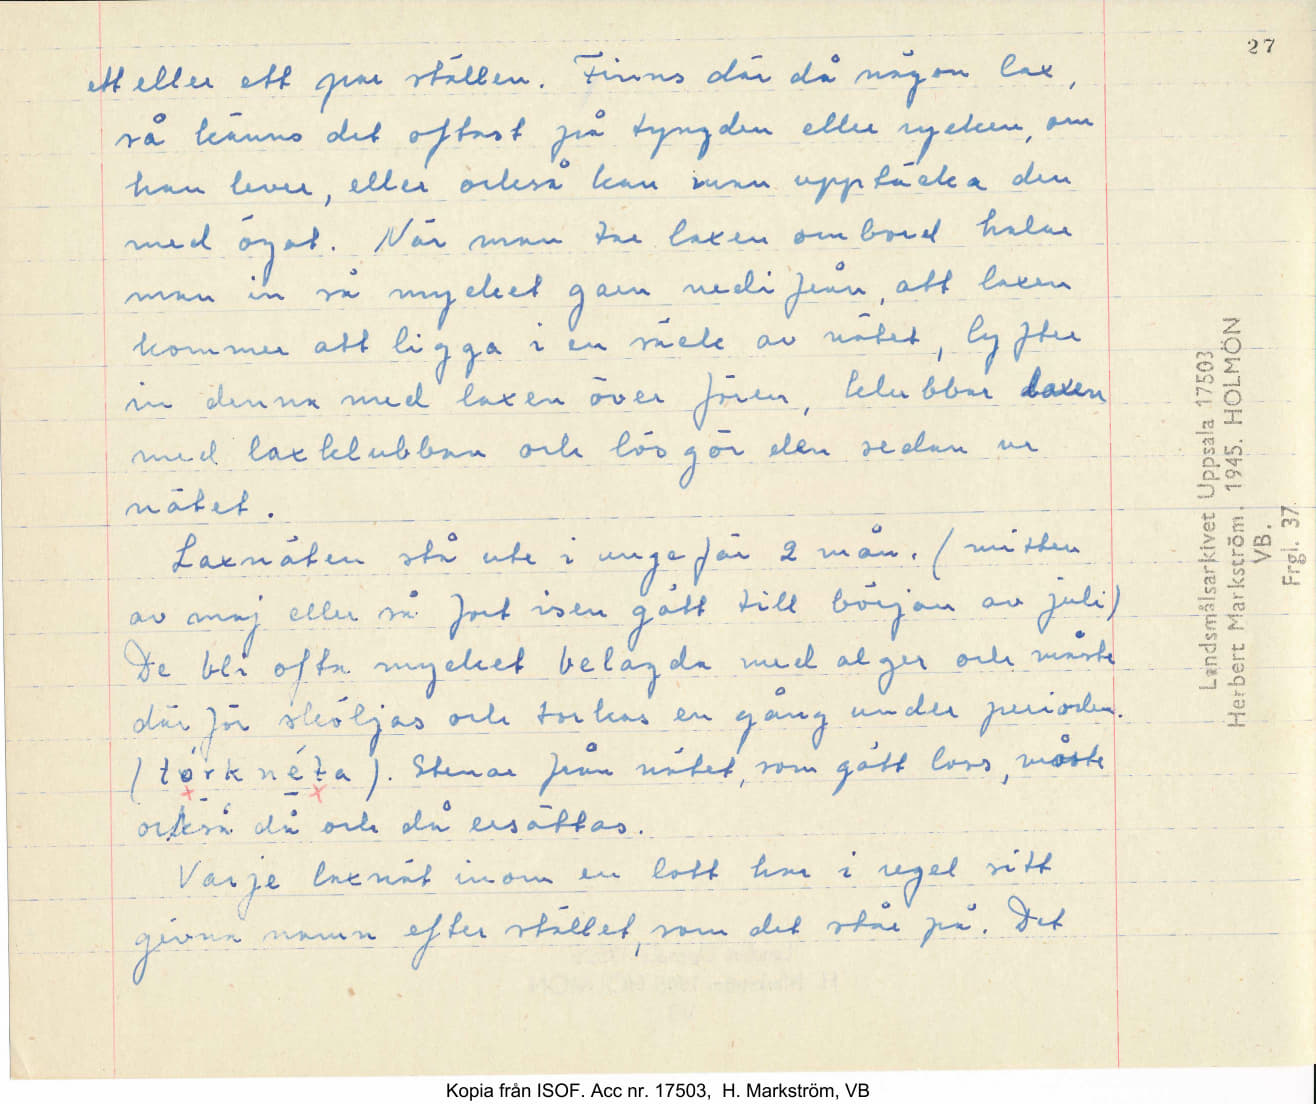 27
ett eller ett par ställen. Finns där då någon lax,
så känns det oftast på tyngden eller rycken, om
han lever, eller också kan man upptäcka den
med ögat. När man tar laxen ombord halar
man in så mycket garn nedifrån, att laxen
kommer att ligga i en säck av nätet, lyfter
in denna med laxen över fören, klubbar laxen
med laxklubban och lösgör den sedan ur
nätet.
Laxnäten stå ute i ungefär 2 mån. (mitten
av maj eller så fort isen gått till början av juli)
De bli ofta mycket belagda med alger och måste
därför sköljas och torkas en gång under perioden.
(tórknéta). Stenar från nätet, som gått loss, måste
också då och då ersättas.
Varje laxnät inom en lott har i regel sitt
givna namn efter stället, som det står på. Det
Landsmålsarkivet Uppsala 17503
Herbert Markström. 1945. HOLMÖN
VB.
Frgl. 37.
Kopia från ISOF. Acc nr. 17503, H. Markström, VB